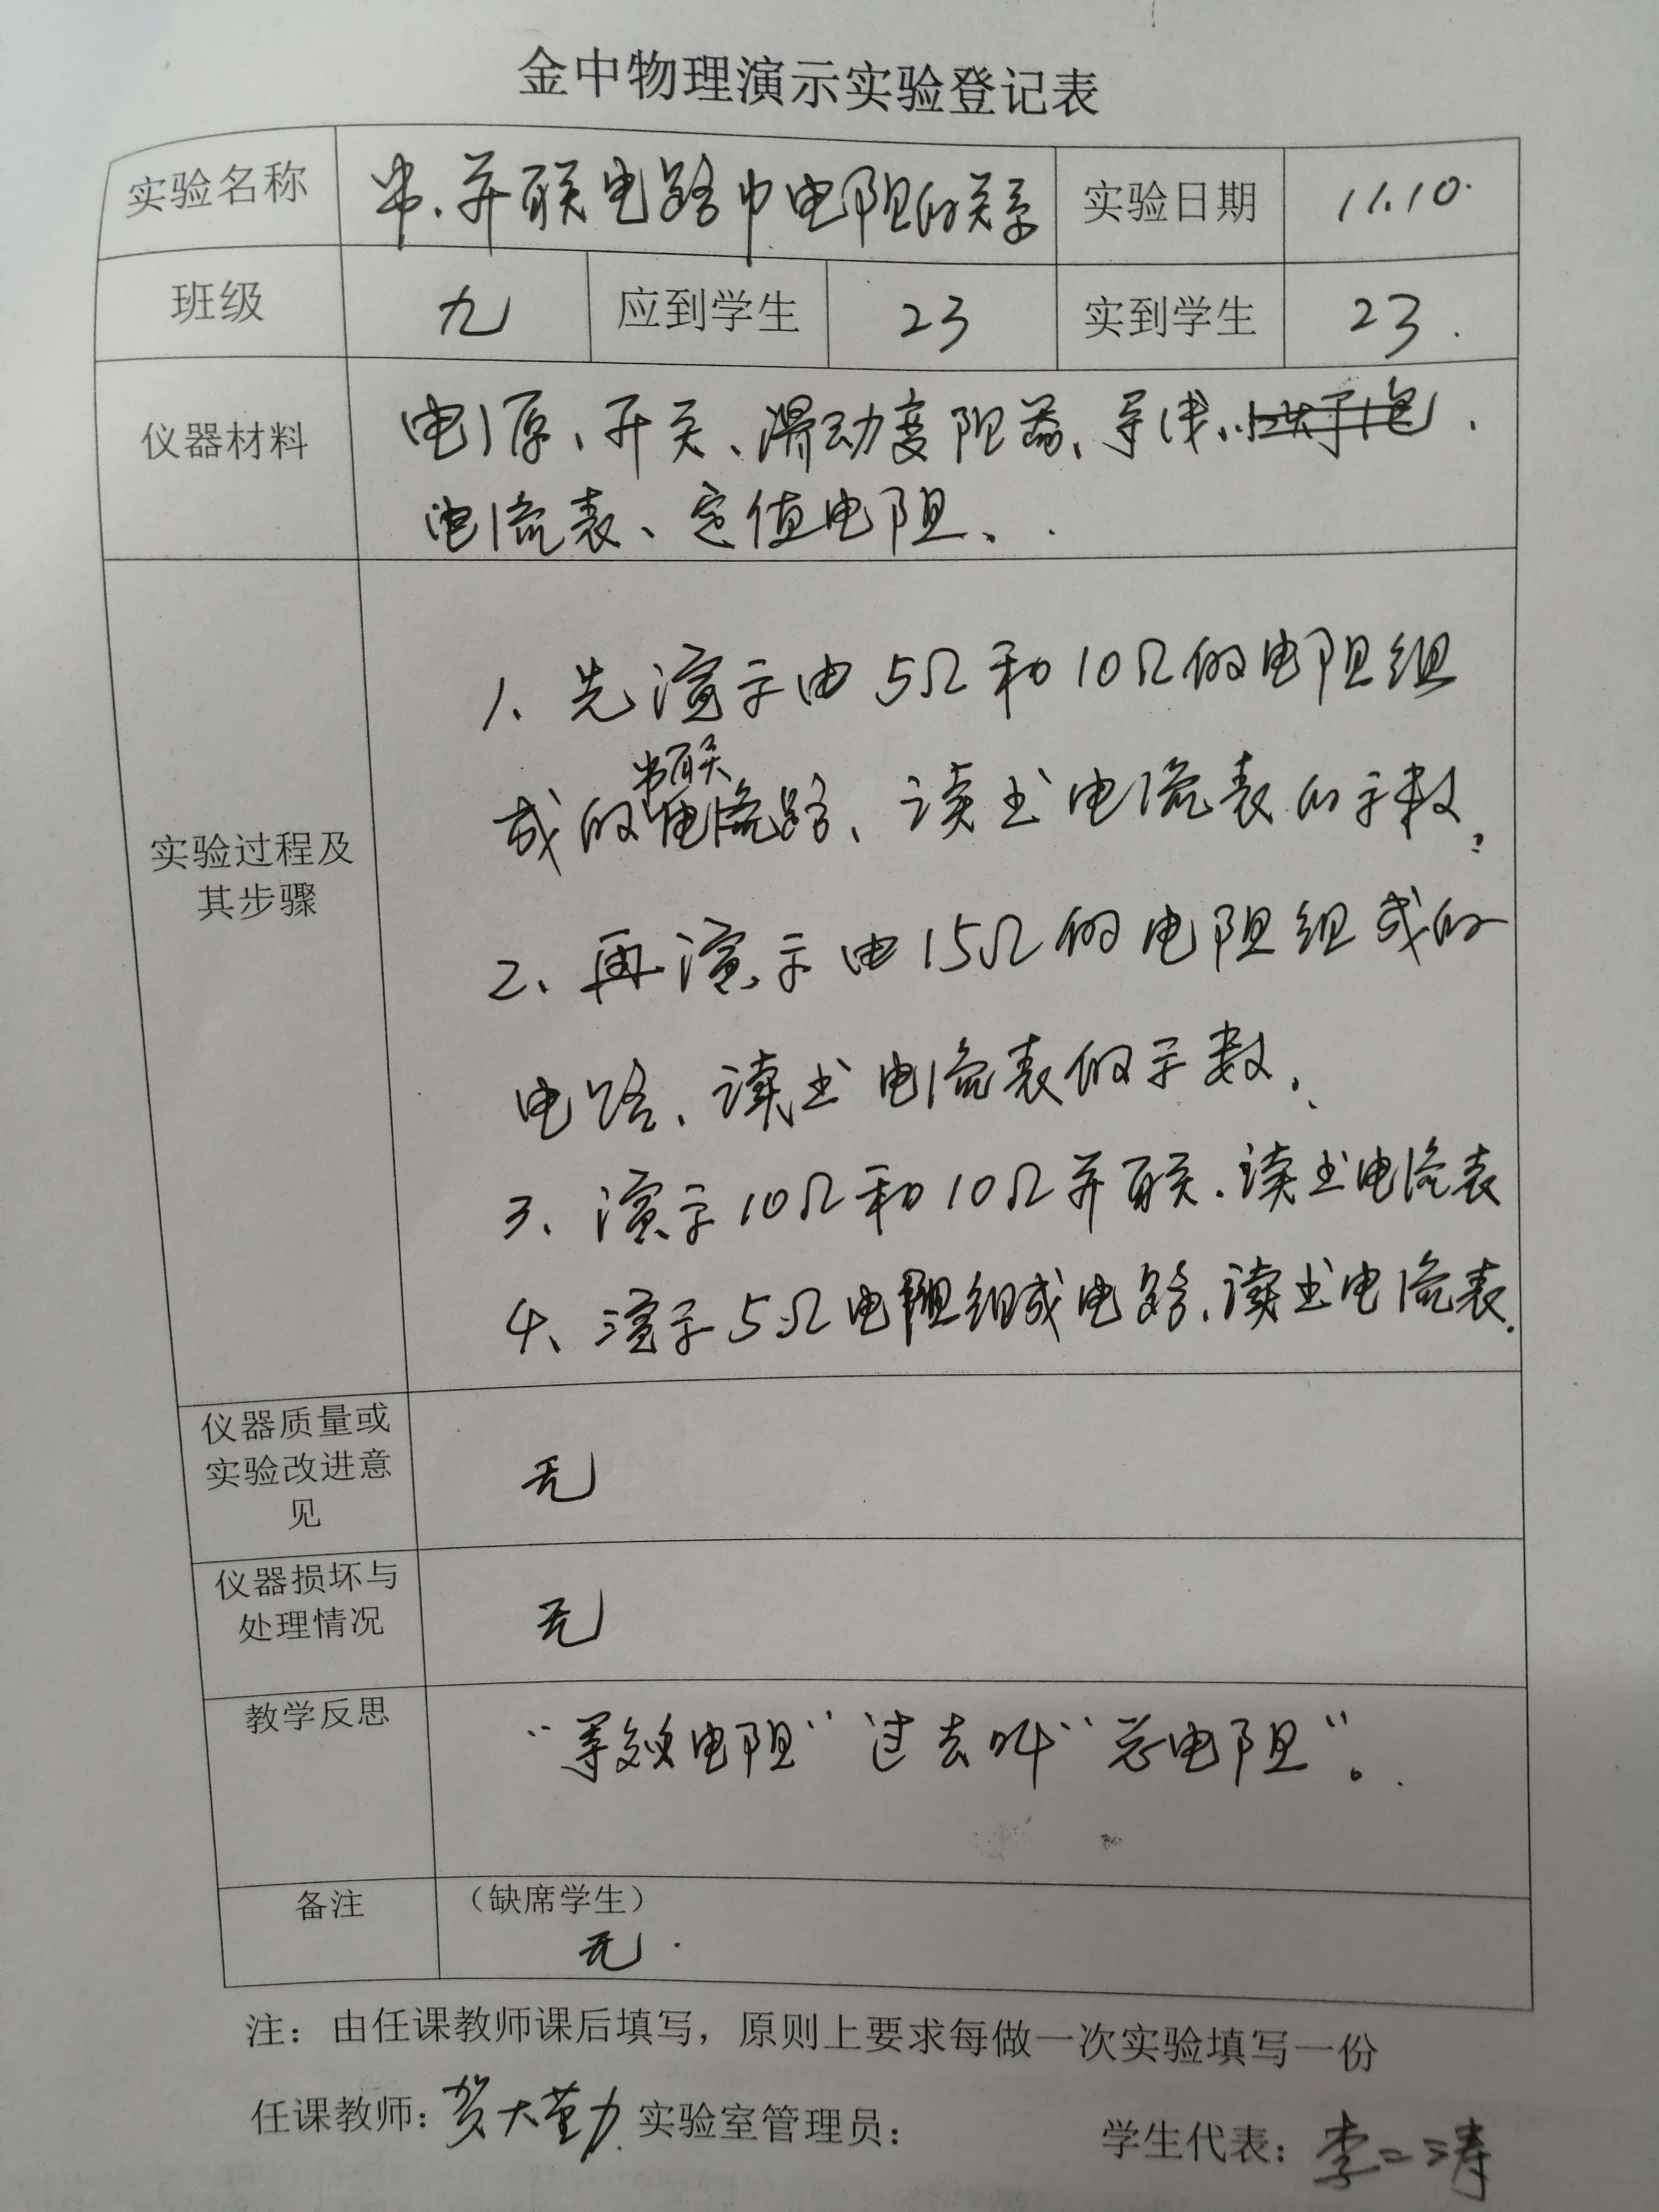 金中物理演示实验登记表
实验名称 串、并联电路中电阻的关系 实验日期 11.10.
班级 九 应到学生 23 实到学生 23.
仪器材料 电源、开关、滑动变阻器、导线、
电流表、定值电阻、.
1、先演示由5Ω和10Ω的电阻组
串联
成的电流路、读出电流表的示数.
实验过程及
其步骤
2、再演示由15Ω的电阻组成的
电路、读出电流表的示数.
3、演示10Ω和10Ω并联.读出电流表
4、演示5Ω电阻组成电路.读出电流表.
仪器质量或
实验改进意
见
无
仪器损坏与
处理情况
无
教学反思 “等效电阻”过去叫“总电阻”。
备注 （缺席学生）
无.
注：由任课教师课后填写，原则上要求每做一次实验填写一份
任课教师：贺大勤 实验室管理员： 学生代表：李二涛